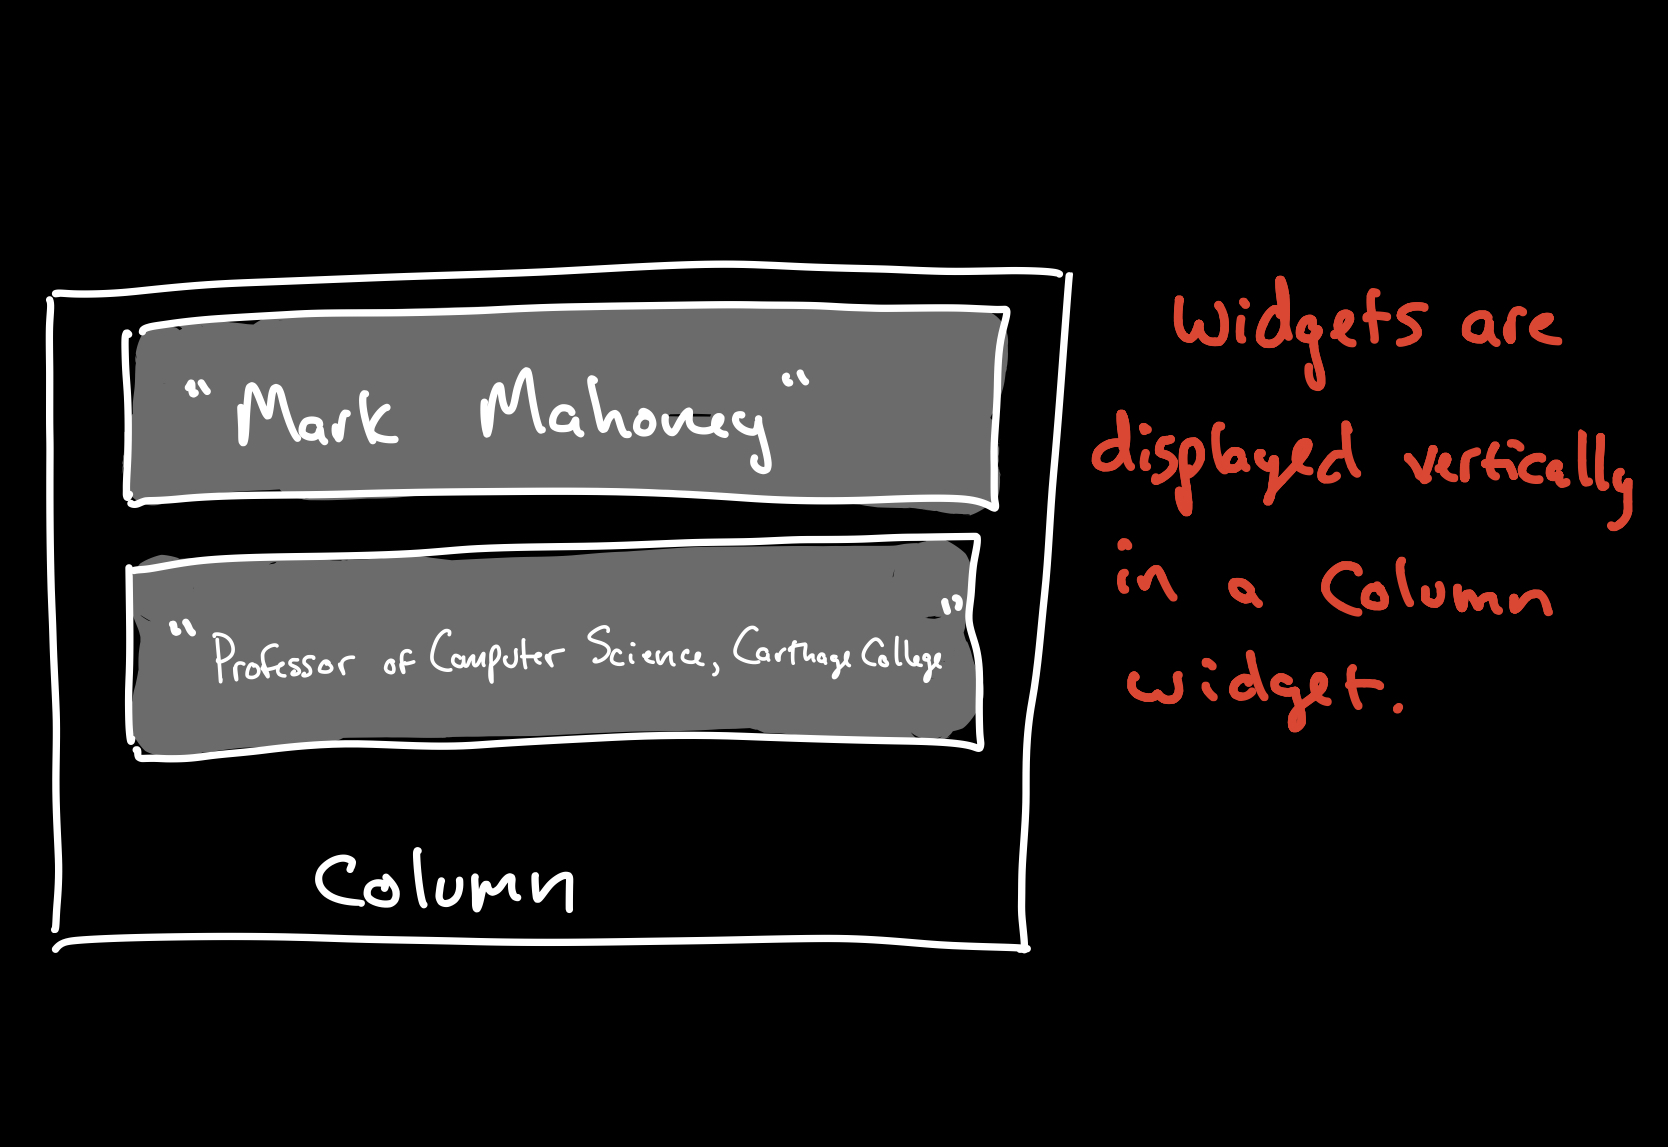 "Mark Mahoney"
"Professor of Computer Science, Carthage College"
Column
Widgets are
displayed vertically
in a Column
widget.